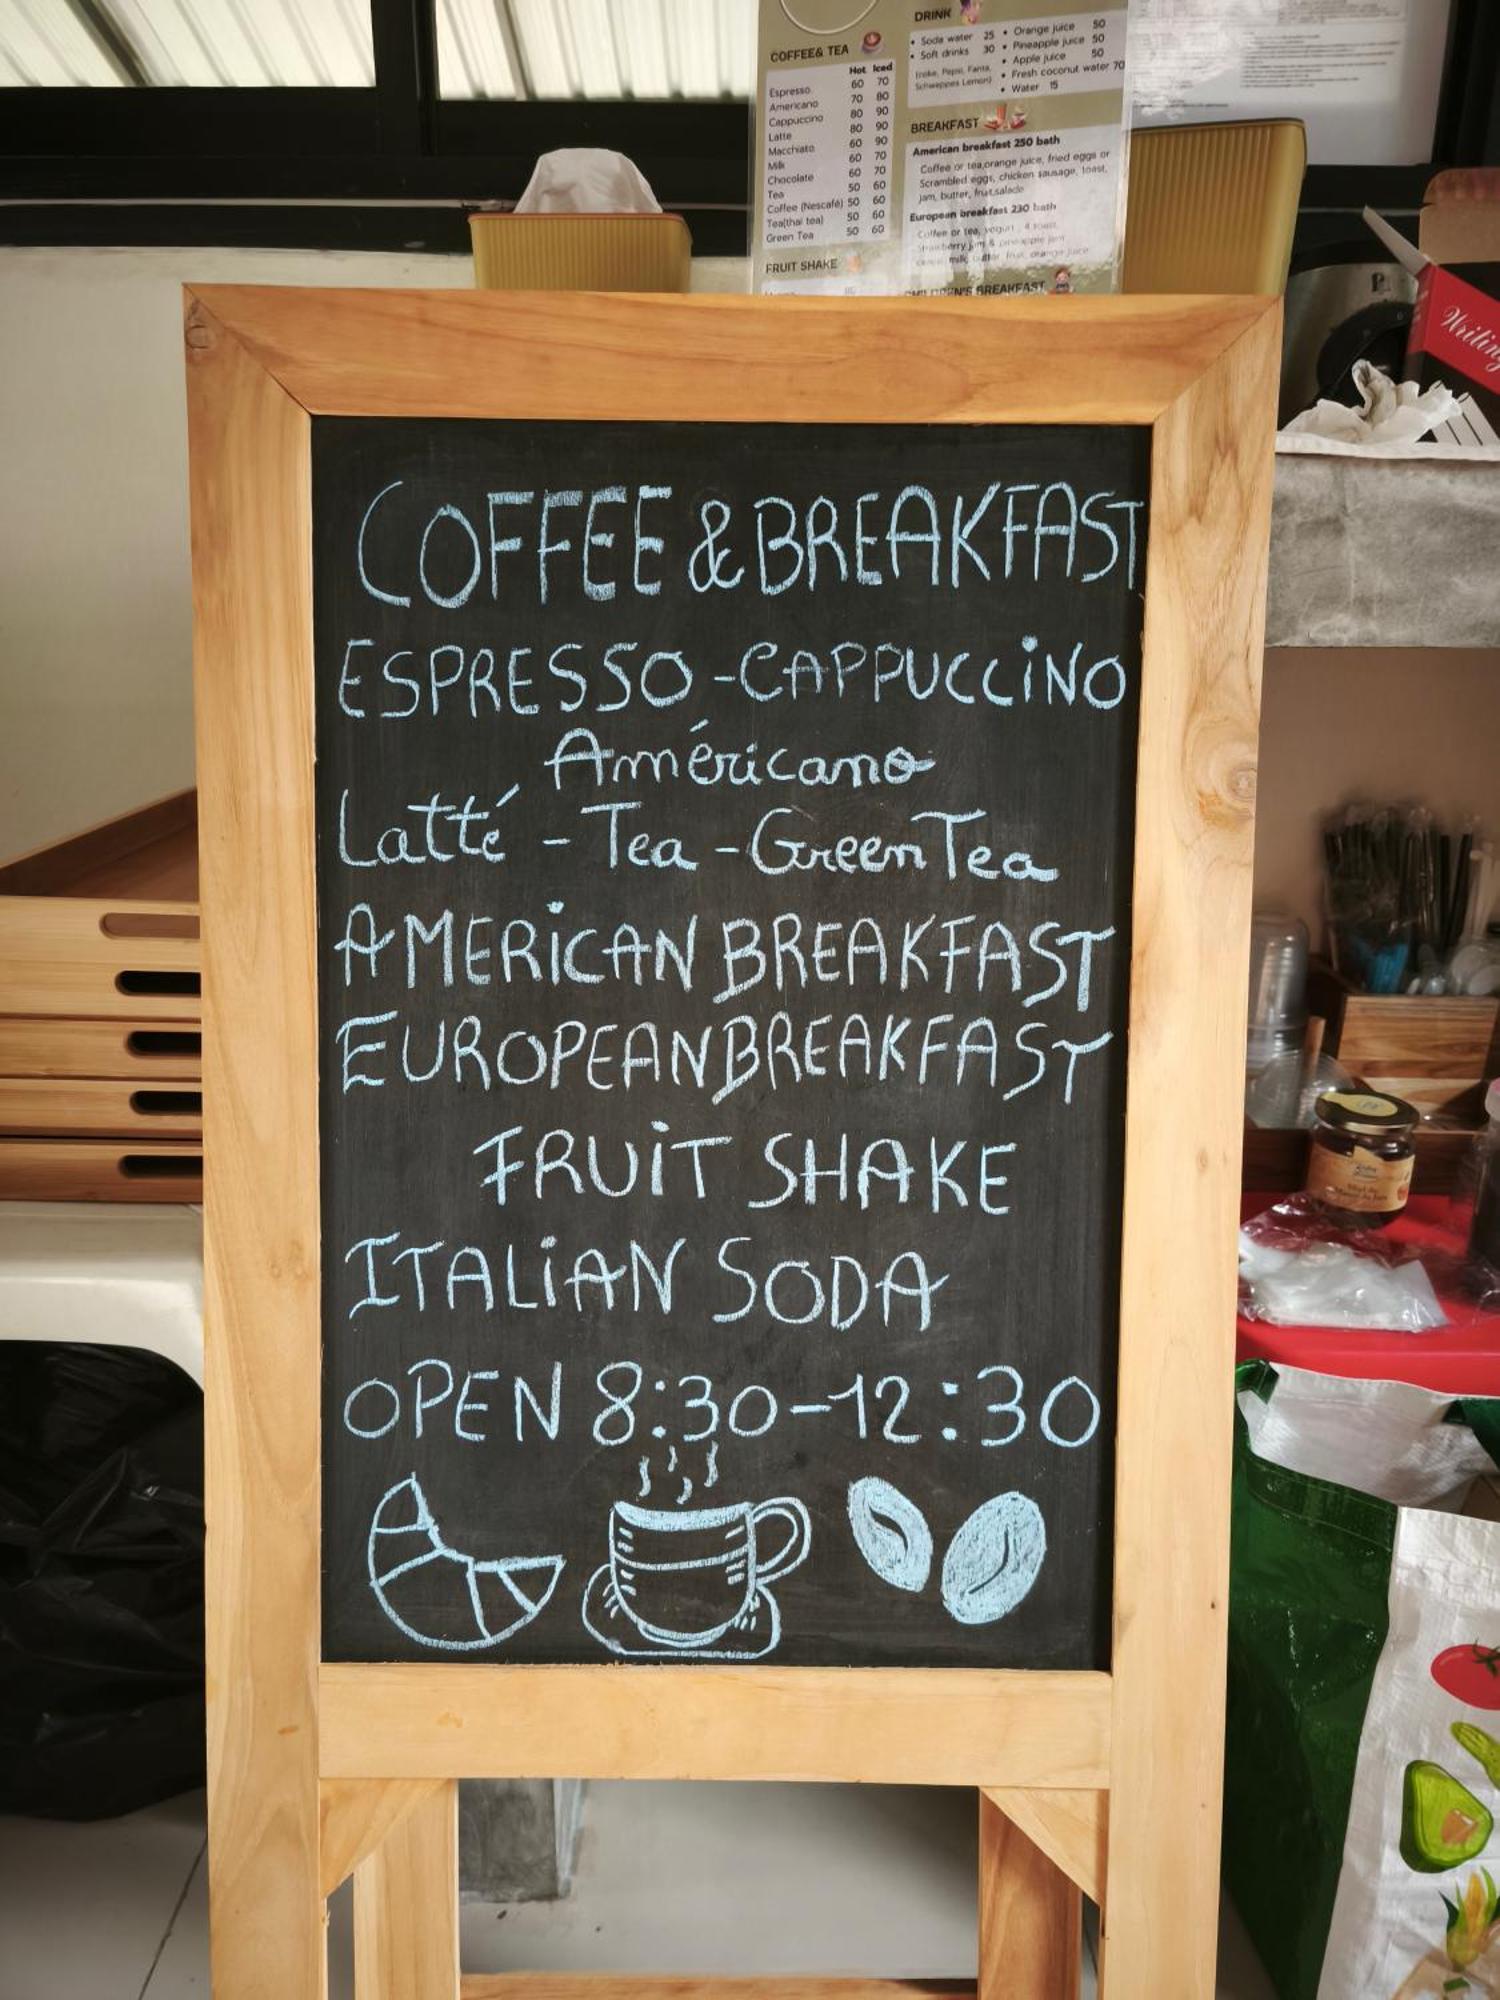 COFFEE& TEA
Hot Iced
Espresso 60 70
Americano 70 80
Cappuccino 80 90
Latte 80 90
Macchiato 60 90
Milk 60 70
Chocolate 60 70
Tea 50 60
Coffee (Nescafé) 50 60
Tea(thai tea) 50 60
Green Tea 50 60
FRUIT SHAKE
DRINK
• Soda water 25
• Soft drinks 30
(coke, Pepsi, Fanta,
Schweppes Lemon)
• Orange juice 50
• Pineapple juice 50
• Apple juice 50
• Fresh coconut water 70
• Water 15
BREAKFAST
American breakfast 250 bath
Coffee or tea,orange juice, fried eggs or
Scrambled eggs, chicken sausage, toast,
jam, butter, fruit,salade
European breakfast 230 bath
Coffee or tea, yogurt , 4 toast,
Strawberry jam & pineapple jam
milk, butter fruit, orange juice
CHILDREN'S BREAKFAST
Writing
COFFEE & BREAKFAST
ESPRESSO - CAPPUCCiNO
Américano
Latté - Tea - Green Tea
AMERiCAN BREAKFAST
EUROPEAN BREAKFAST
FRUiT SHAKE
ITALiAN SODA
OPEN 8:30-12:30